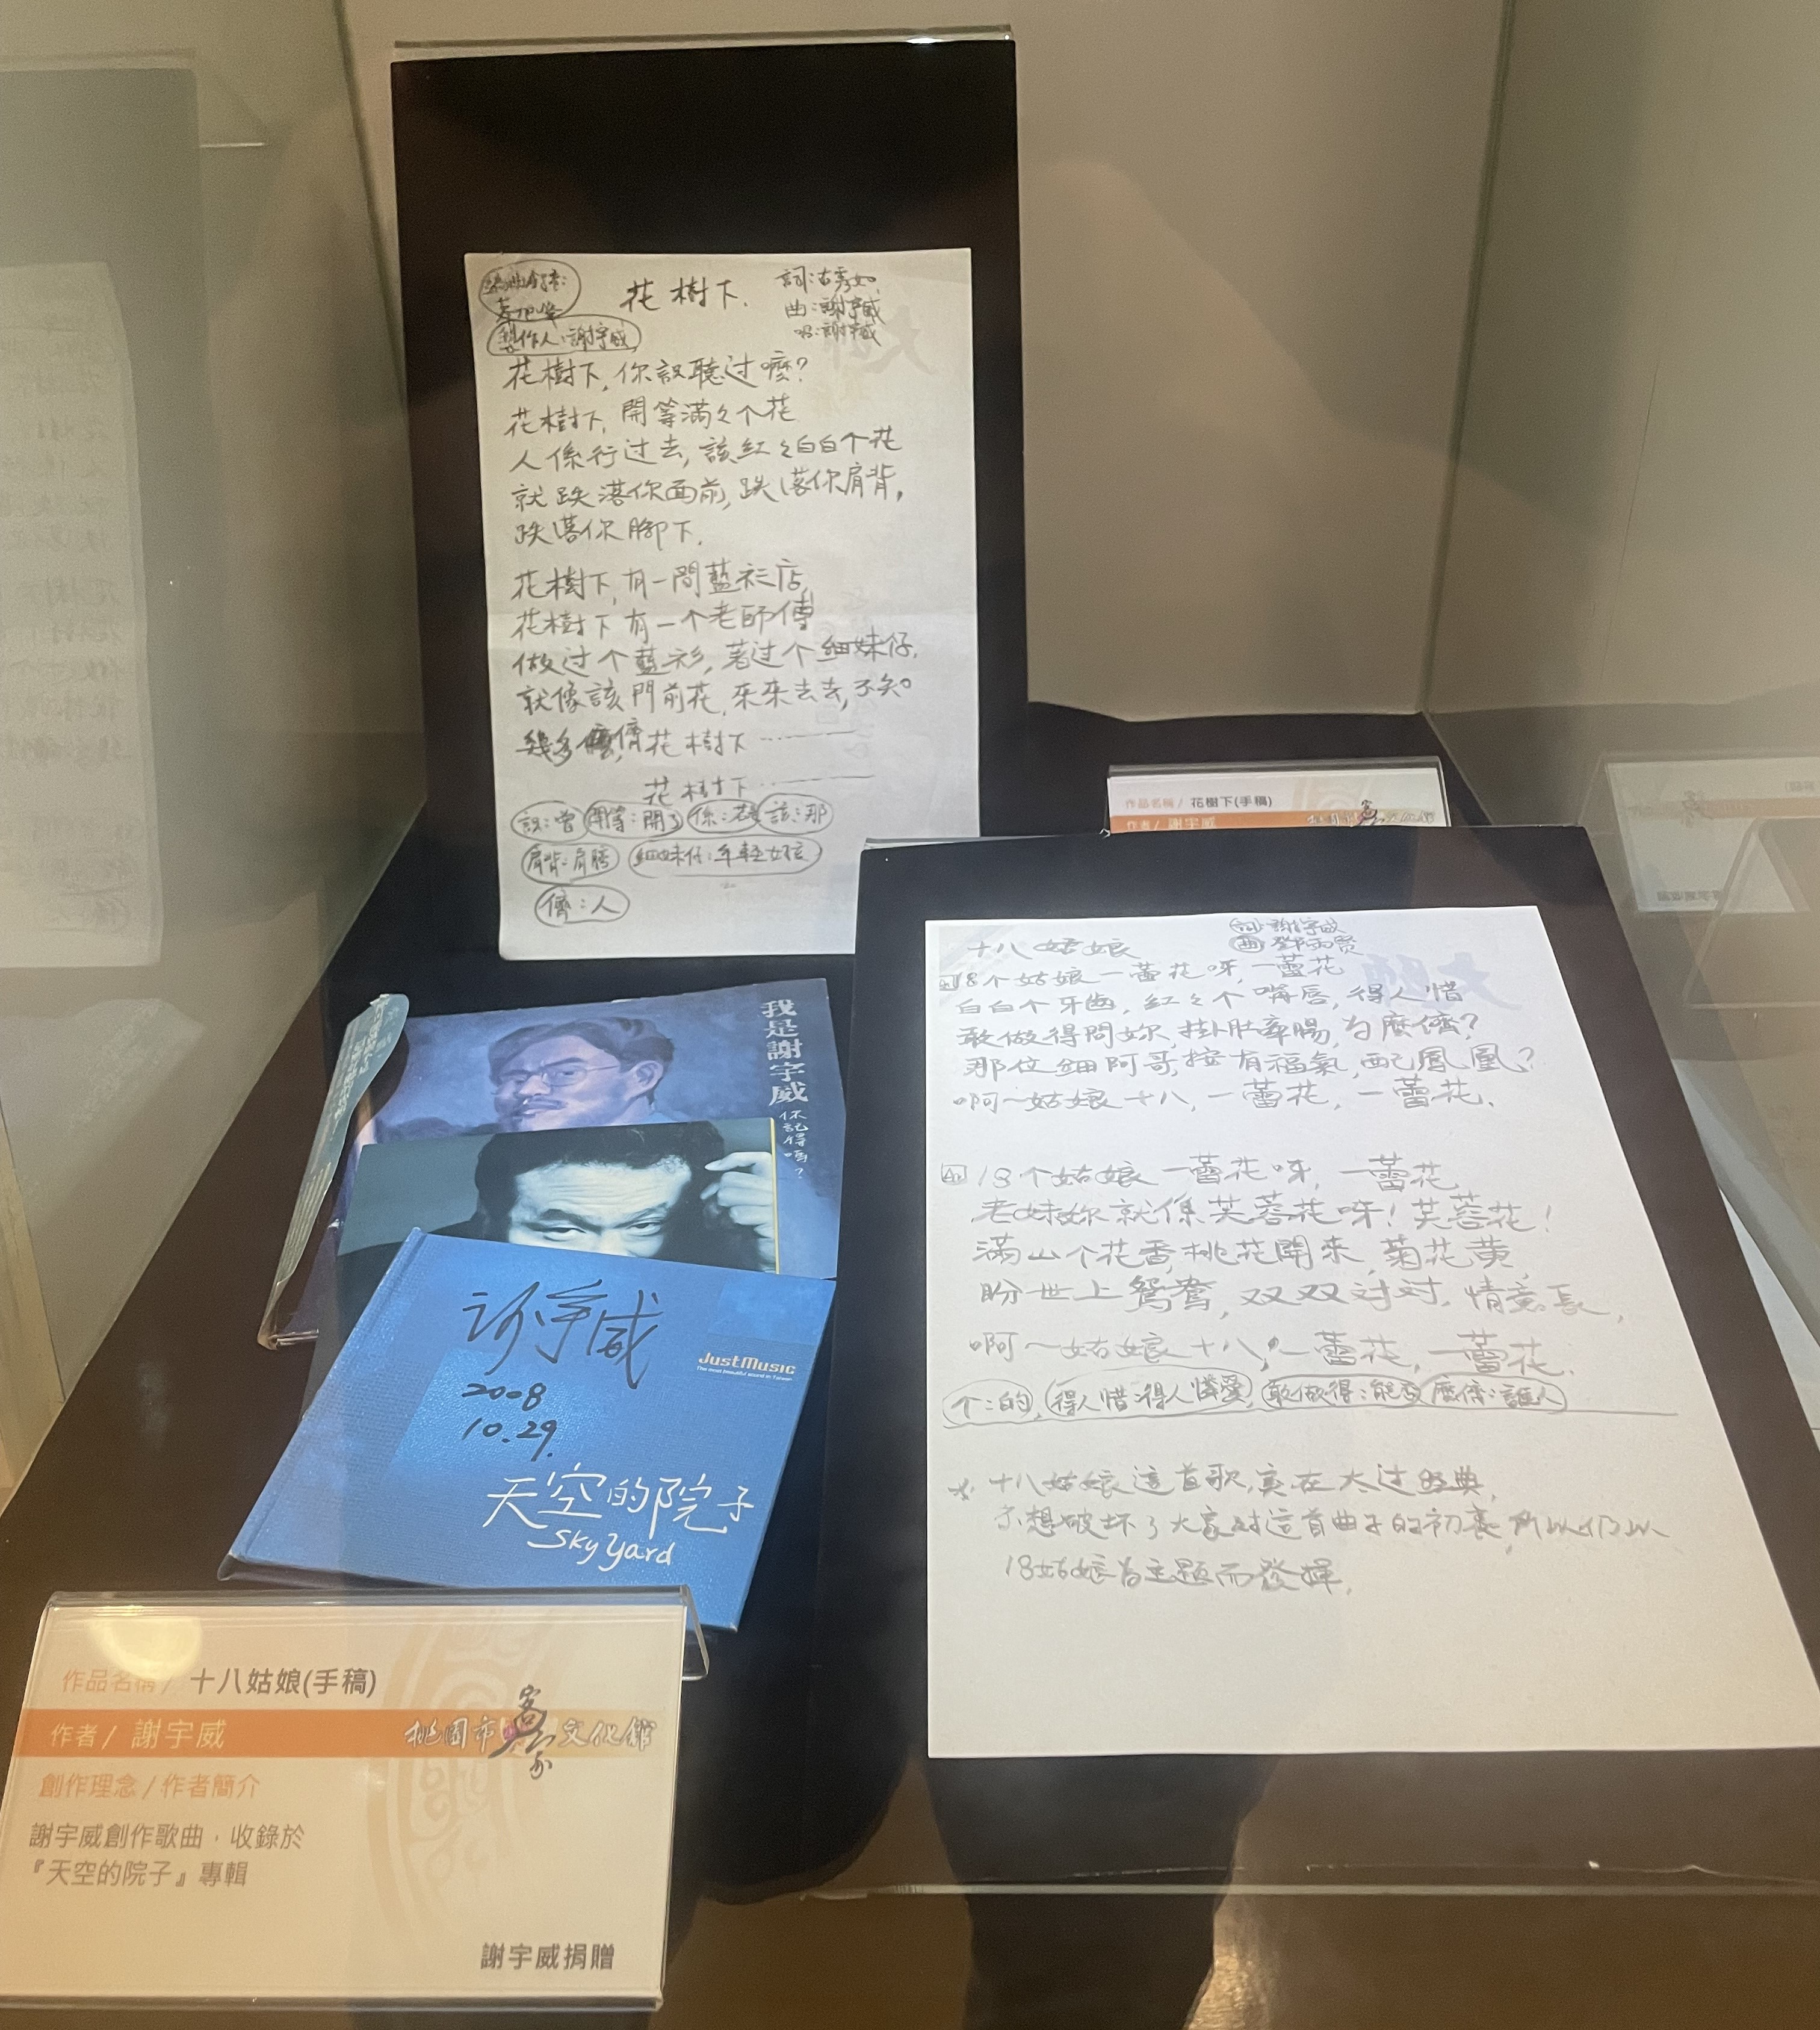 花樹下.
詞:古秀如
曲:謝宇威
唱:謝宇威
製作人:謝宇威
花樹下,你識聽过嘸?
花樹下,開等滿々个花
人係行过去,該紅々白白个花
就跌落你面前,跌落你肩背,
跌落你腳下.
花樹下,有一間藍衫店,
花樹下有一个老師傅
做过个藍衫,著过个細妹仔.
就像該門前花,來來去去,不知
幾多儕,花樹下
花樹下
識:曾 開等:開了 係:若 該:那
肩背:肩膀 細妹仔:年輕女孩
儕:人
作品名稱/ 花樹下(手稿)
作者/ 謝宇威
十八姑娘
詞 謝宇威
曲 鄧雨賢
A1 18个姑娘一蕾花呀,一蕾花
白白个牙齒,紅々个嘴唇,得人惜
敢做得問妳,掛肚牽腸,為麼儕?
那位細阿哥,按有福氣,配鳳凰?
啊~姑娘十八,一蕾花,一蕾花.
A2 18个姑娘一蕾花呀,一蕾花
老妹妳就係芙蓉花呀!芙蓉花!
滿山个花香,桃花開來,菊花黃
盼世上鴛鴦,双双対対,情意長,
啊~姑娘十八,一蕾花,一蕾花.
个:的,得人惜:得人憐愛,敢做得:能否 麼儕:誰人
十八姑娘這首歌,實在太过經典,
不想破坏了大家対這首曲子的初衷,所以仍以
18姑娘為主題而發揮.
我是謝宇威
你記得嗎?
謝宇威
2008
10.29.
JustMusic
The most beautiful sound in Taiwan
天空的院子
Sky Yard
作品名稱/ 十八姑娘(手稿)
作者/ 謝宇威
桃園市客家文化館
創作理念/作者簡介
謝宇威創作歌曲,收錄於
『天空的院子』專輯
謝宇威捐贈